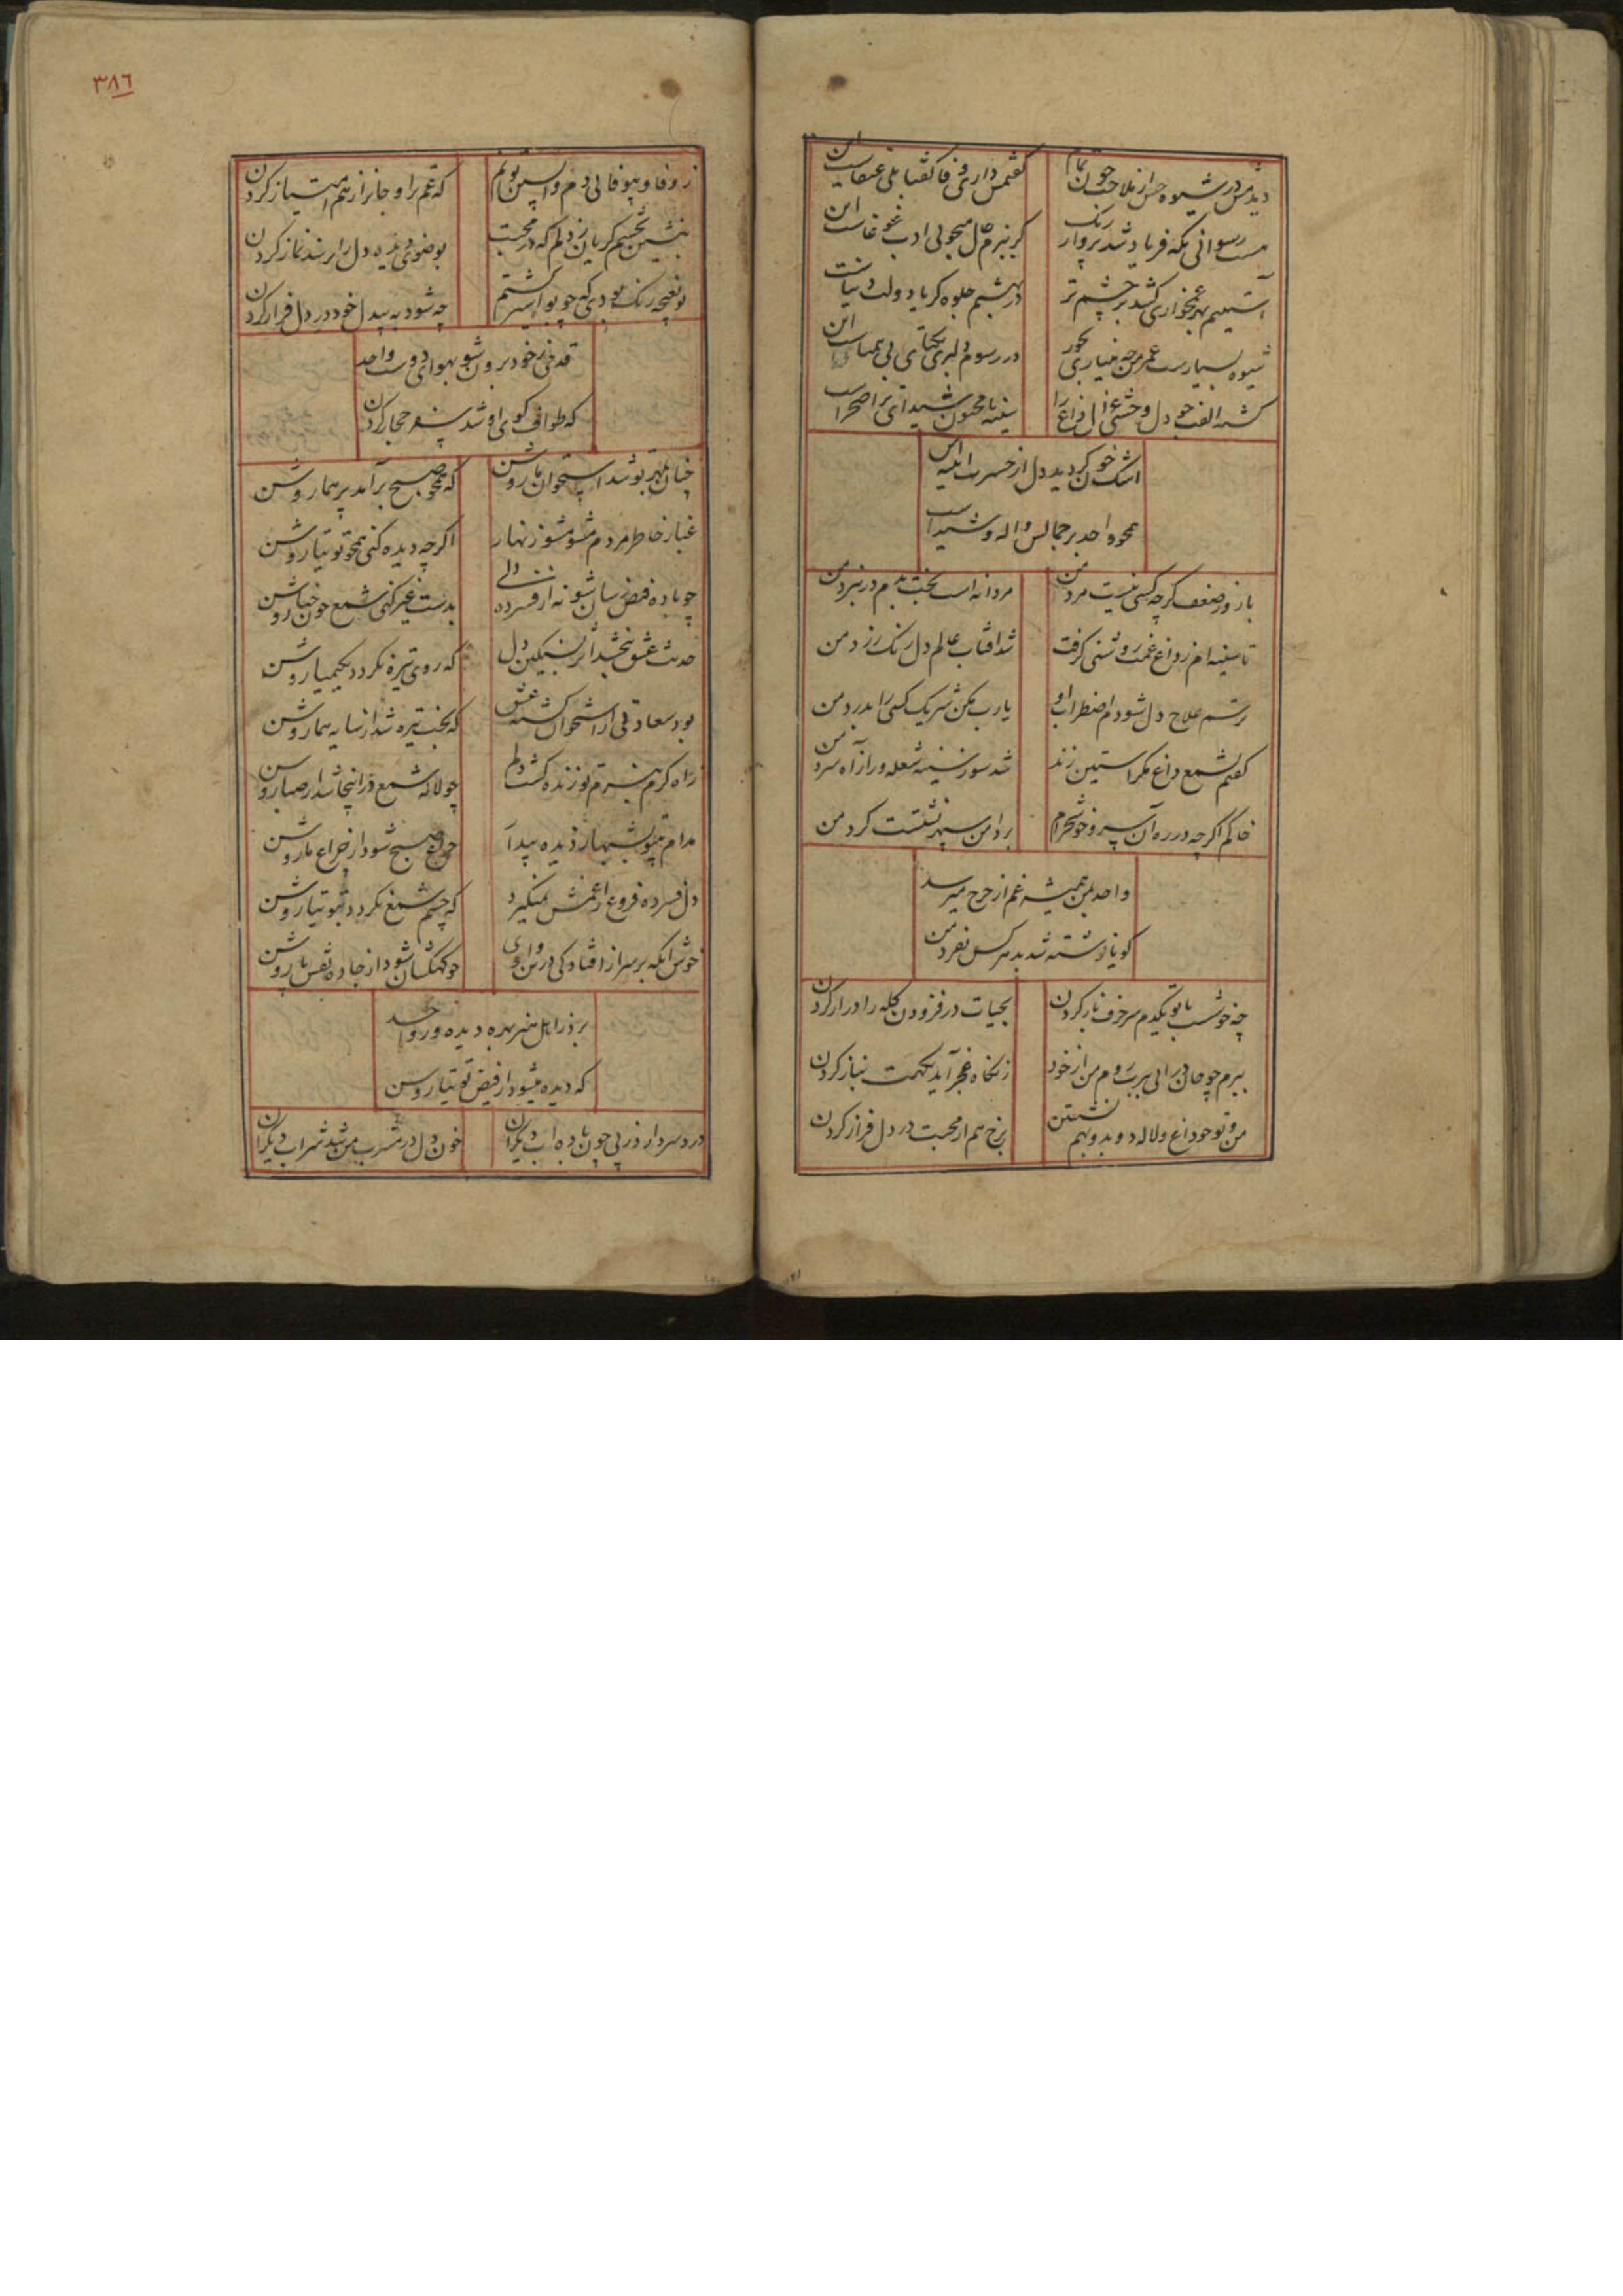 دیدمش در شیوه حسن از ملاحت چون تمام
گفتمش داری وفا گفتا بلی عنقاست این
رسوائی که فریاد شد پرواز رنگ
گر ببزم می ادب غوغاست این
آستینم بهر غمخواری کشد بر چشم تر
در بهشتم جلوه گر یا دولت دنیاست
شیوه بسیارست عمر من چه میناری بجور
در رسوم دلبری یکتای بی همتاست این
گشته الفت جو دل وحشی غزال داغ را
سینه ما مجنون شیدای ترا صحراست
اشک خون گردید دل از حسرت
محو واحد بر جمالش واله و شیداست
با زور ضعف گرچه کسی نیست مرد من
مردانه است بخت بدم در نبرد من
تا سینه ام ز داغ غمت روشنی گرفت
شد آفتاب عالم دل رنگ زرد من
ترسم علاج دل شودم اضطراب او
یارب مکن شریک کسی را بدرد من
گفتم شمع داغ مگر آستین زند
شد سوز سینه شعله ور از آه سرد من
خاکم اگر چه در ره آن سرو خوشخرام
بر دامن سپهر نشست گرد من
واحد بمن همیشه غم از چرخ میرسد
گویا نوشته شد بد هر کس بفرد من
چه خوشست با تو یکدم سر حرف باز کردن
بحیات در فزودن گله را دراز کردن
ببرم چو جان درائی ببرت روم من از خود
ز نگاه عجز آید بکهمت نیاز کردن
من و تو چو داغ و لاله دو بدو بهم نشستن
برخ هم از محبت در دل فراز کردن
۳۸۶
ز وفا و بیوفائی دم واپسین تو
که غم را و جان را ز هم امتیاز کردن
بنشین بچشم گریان ز دلم که در محبت
بوضوی دیده دل را نماز کردن
تو بغنچه رنگ بودی که چو بو اسیر گشتم
چه شود به بیدل خود در دل فراز کردن
قدمی ز خود برون شو بهوای دوست واحد
که طواف کوی او شد سفر حجاز کردن
چنان بمهر تو شد استخوان ما روشن
که همچو صبح برآمد پر هما روشن
غبار خاطر مردم مشو مشو زنهار
اگر چه دیده کنی همچو توتیا روشن
چو باده فیض رسان شو نه از فسرده دلی
بدست غیر کنی شمع چون حنا روشن
حدیث عشق نبخشد اثر بسنگین دل
که روی تیره نگردد بکیمیا روشن
بود سعادتی از استخوان کشته عشق
که بخت تیره شد از سایه هما روشن
ز آه گرم ببزم تو زنده گشت دلم
چو لاله شمع در اینجا شد از صبا روشن
مدام بشبها ز دیده پیدا
چراغ صبح شود از چراغ ما روشن
دل فسرده فروغ از غمش نمیگیرد
که چشم شمع نگردد بتوتیا روشن
خوش آنکه بر سر از افتادگی درین وادی
چو کهکشان شود از جاده نقش پا روشن
بر در اهل هنر بهره دیده ور واحد
که دیده میشود از فیض توتیا روشن
درد سر دارد ز پی چون باده آب دیگران
خون دل در مشرب من شد شراب دیگران